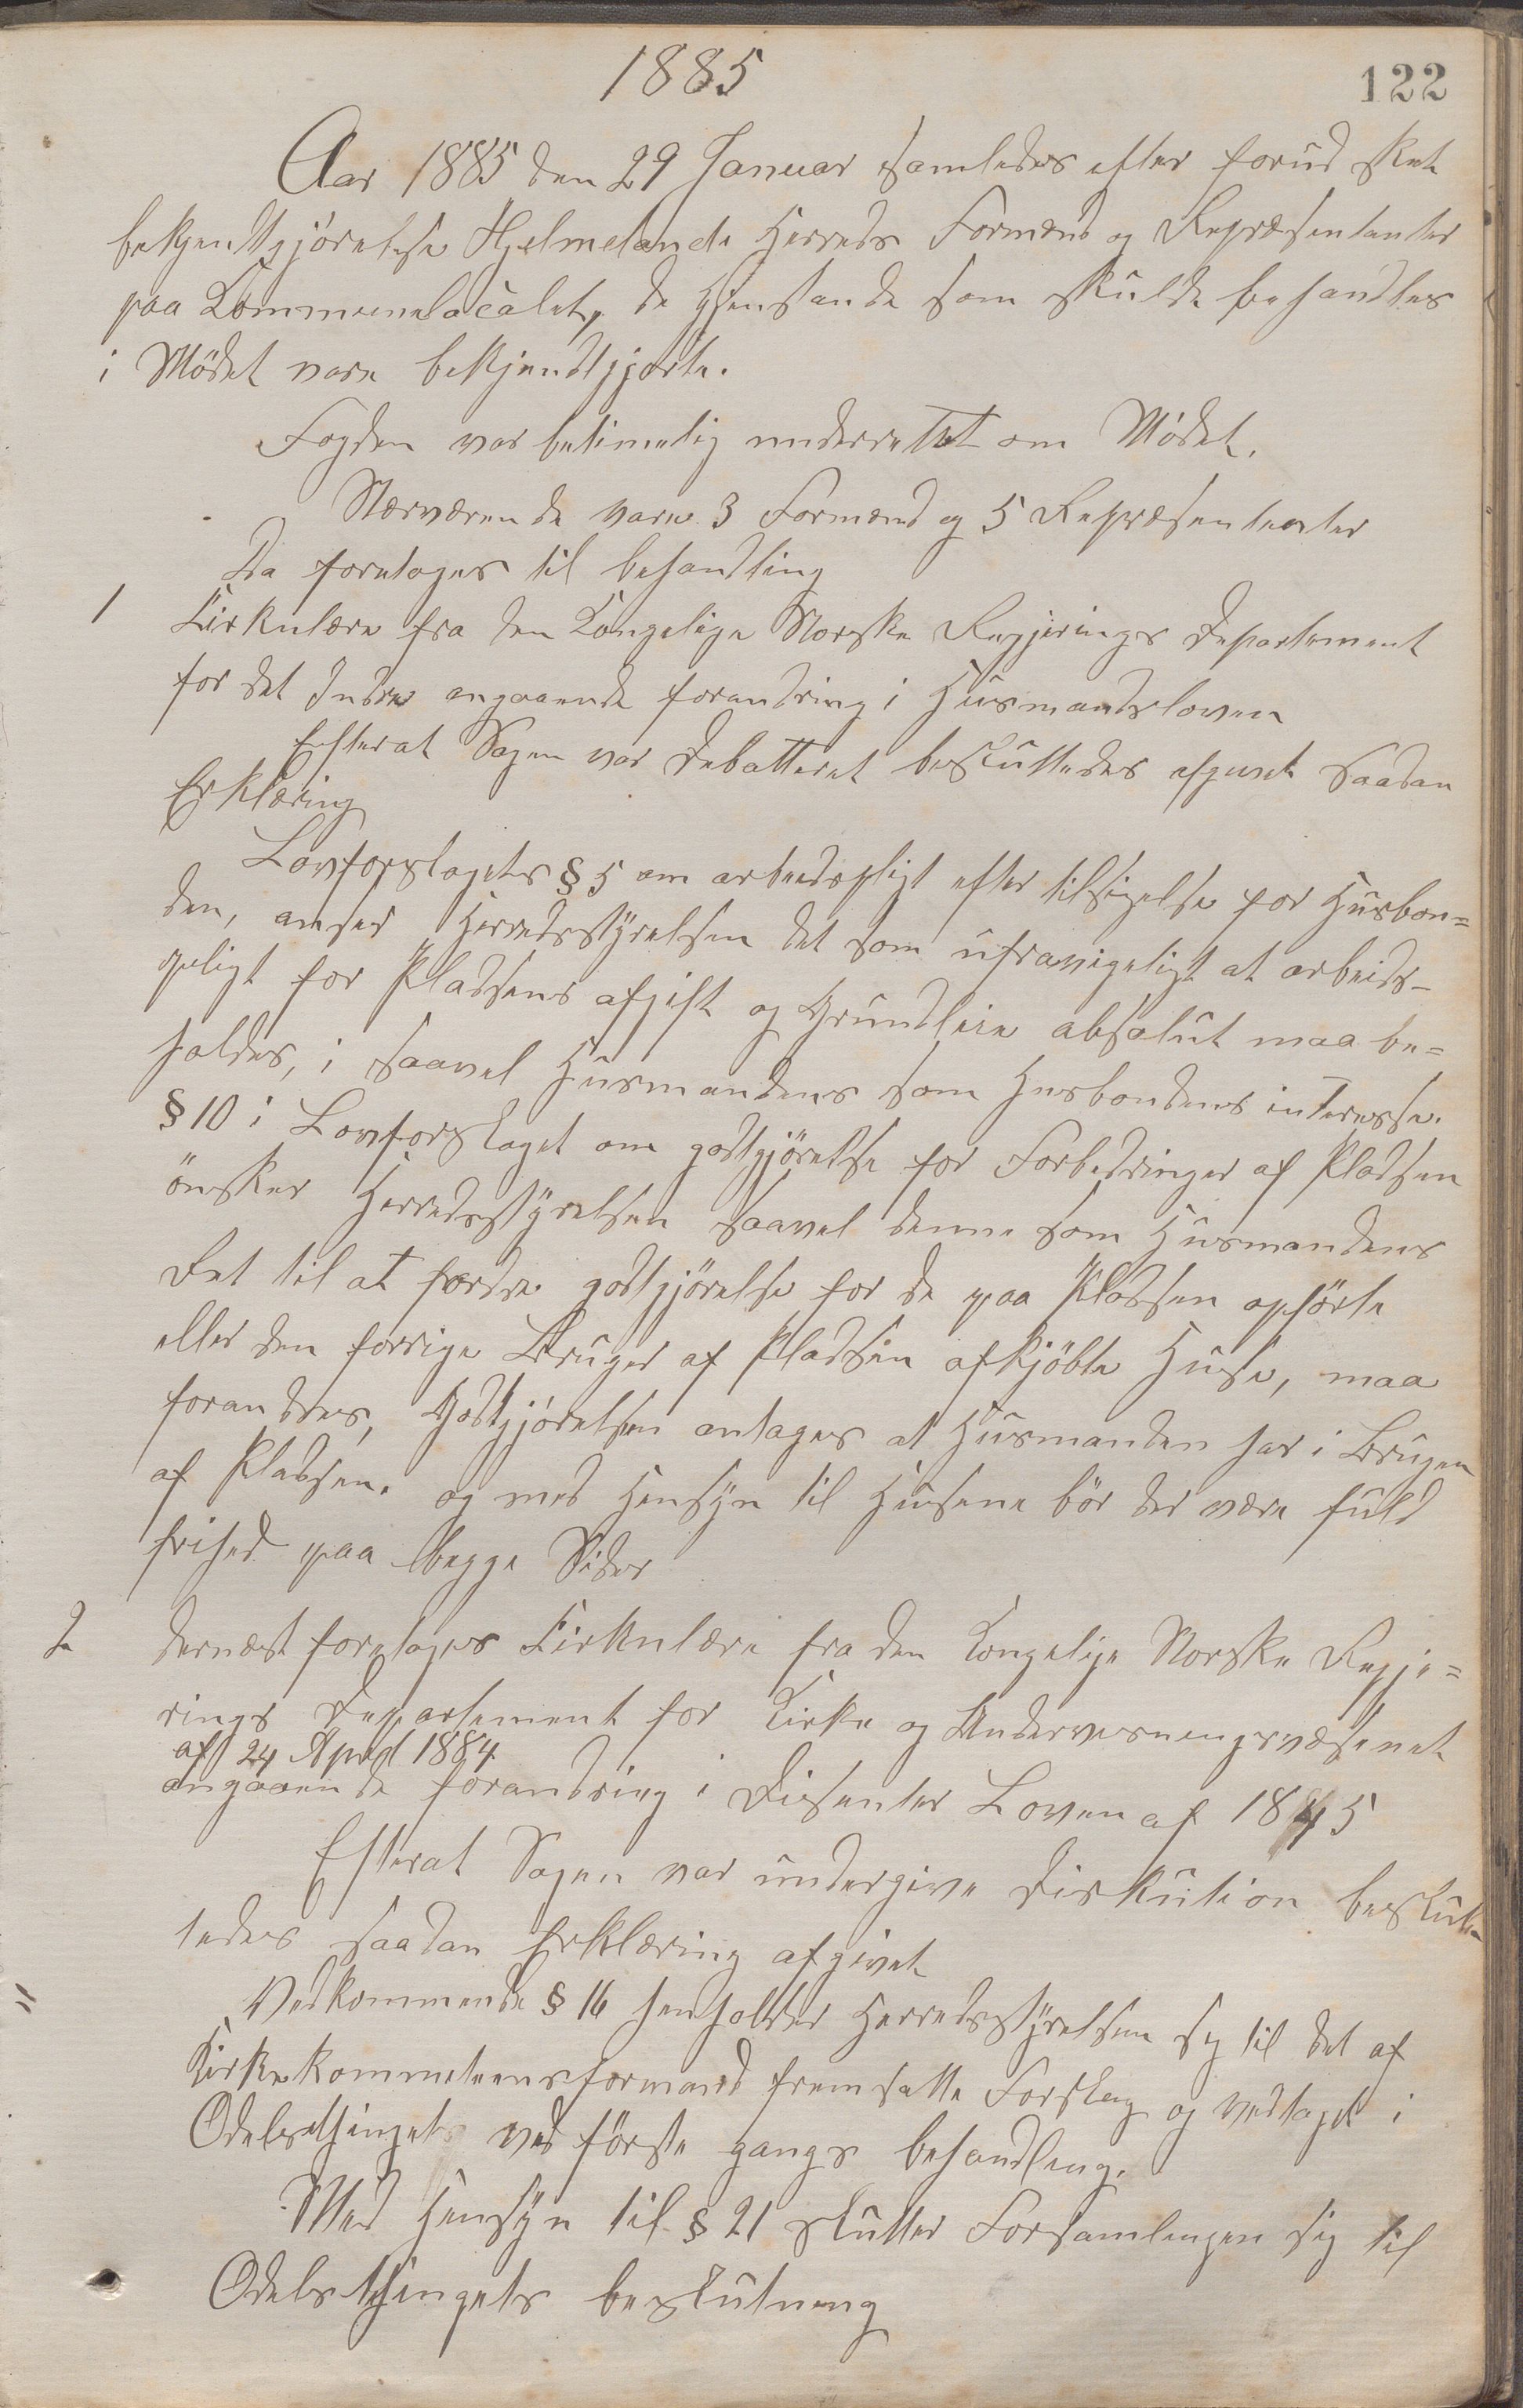 1885
122
Aar 1885 den 29 Januar samledes efter forud sket
bekjendtgjørelse Hjelmelands Herreds Formænd og Repræsentanter
paa Kommunelocalet, de Gjenstande som skulde behandles
i Mødet vare bekjendtgjorte.
Fogden var betimelig underrettet om Mødet.
Nærværende vare 3 Formænd og 5 Repræsentanter
Da foretoges til behandling
1 Cirkulære fra den Kongelige Norske Regjerings Departement
for det Indre angaaende forandring i Husmandsloven
Efterat Sagen var Debatteret besluttedes afgivet saadan
Erklæring
Lovforslagets § 5 om arbeidspligt efter tilsigelse for Husbon=
den, anser Herredsstyrelsen det som ufravigeligt at arbeids-
pligt for Pladsens afgift og Grundleie absolut maa be=
holdes, i saavel Husmandens som Husbondens interesse.
§ 10 i Lovforslaget om godtgjörelse for Forbedringer af Pladsen
önsker Herredsstyrelsen saavel denne som Husmandens
Ret til at fordre godtgjörelse for de paa Pladsen opförte
eller den forrige Bruger af Pladsen afkjöbte Huse, maa
forandres, Godtgjörelsen antages at Husmanden har i Brugen
af Pladsen. og med Hensyn til Husene bör der være fuld
frihed paa begge Sider
2 dernæst foretoges Cirkulære fra den Kongelige Norske Regje=
rings Departement for Kirke og Undervisningsvæsenet
af 24 April 1884
angaaende forandring i Disenter Loven af 1845
Efterat Sagen var undergive Diskution beslut=
tedes saadan Erklæring afgivet
Vedkommende § 16 henholder Herredsstyrelsen sig til det af
Kirkekommeteensformand fremsatte Forslag og vedtaget i
Odelsthinget ved förste gangs behandleng.
Med Hensyn til § 21 slutter Forsamlingen sig til
Odelsthingets beslutning